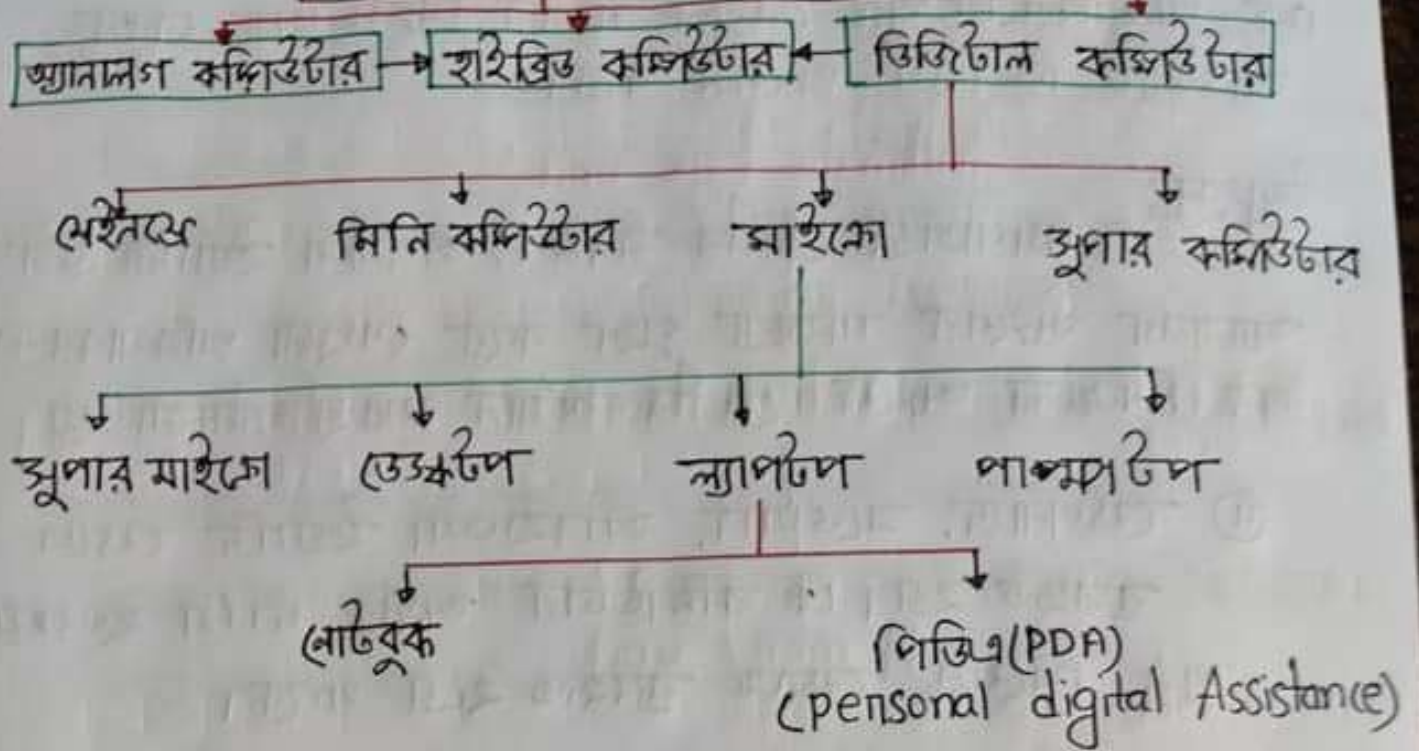 অ্যানালগ কম্পিউটার হাইব্রিড কম্পিউটার ডিজিটাল কম্পিউটার
মেইনফ্রেম মিনি কম্পিউটার মাইক্রো সুপার কম্পিউটার
সুপার মাইক্রো ডেস্কটপ ল্যাপটপ পাম্পটপ
নোটবুক পিডিএ (PDA)
(personal digital Assistance)